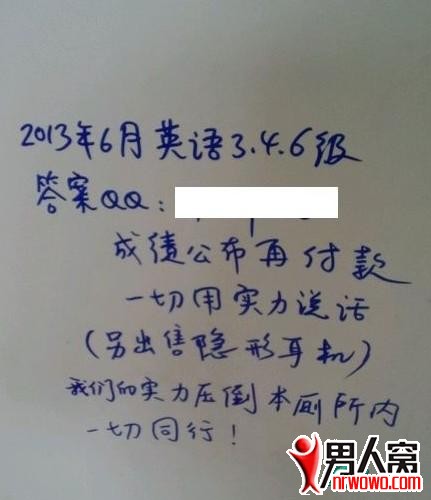 2013年6月英语3.4.6级
答案QQ:
成绩公布再付款
一切用实力说话
(另出售隐形耳机)
我们的实力压倒本厕所内
一切同行!
男人窝
nrwowo.com